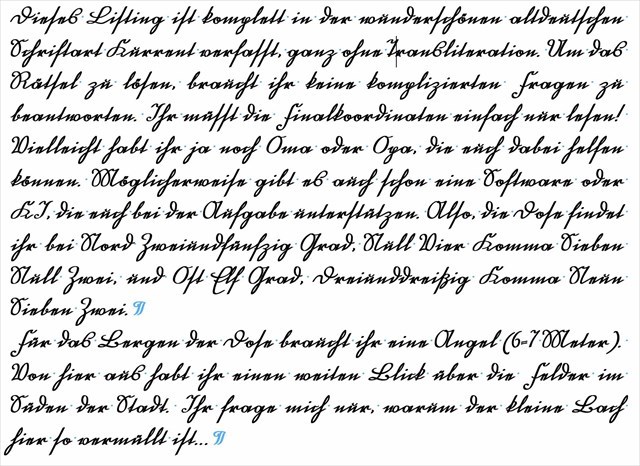 Dieses Listing ist komplett in der wunderschönen altdeutschen
Schriftart Kurrent verfasst, ganz ohne Transliteration. Um das
Rätsel zu lösen, braucht ihr keine komplizierten Fragen zu
beantworten. Ihr müsst die Finalkoordinaten einfach nur lesen!
Vielleicht habt ihr ja noch Oma oder Opa, die euch dabei helfen
können. Möglicherweise gibt es auch schon eine Software oder
KI, die euch bei der Aufgabe unterstützen. Also, die Dose findet
ihr bei Nord Zweiundfünfzig Grad, Null Vier Komma Sieben
Null Zwei, und Ost Elf Grad, Dreiunddreißig Komma Neun
Sieben Zwei.¶
Für das Bergen der Dose braucht ihr eine Angel (6-7 Meter).
Von hier aus habt ihr einen weiten Blick über die Felder im
Süden der Stadt. Ihr frage mich nur, warum der kleine Bach
hier so vermüllt ist... ¶